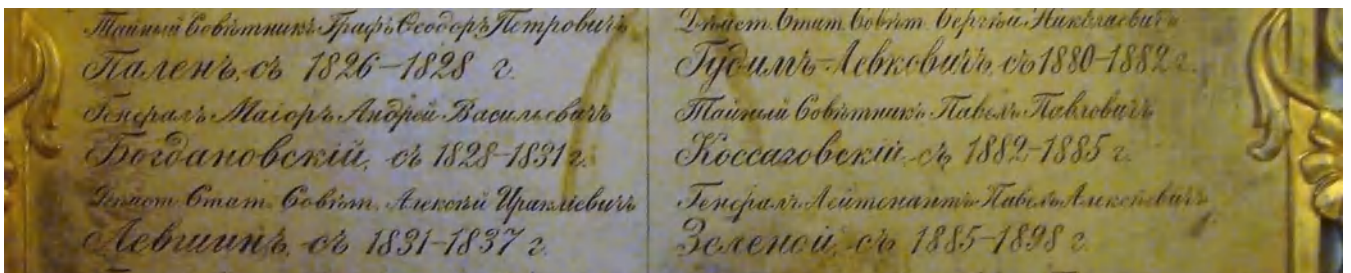 Тайный Совѣтникъ Графъ Ѳеодоръ Петровичъ
Паленъ, съ 1826–1828 г.
Генералъ-Маіоръ Андрей Васильевичъ
Богдановскій, съ 1828–1831 г.
Дѣйст. Стат. Совѣт. Алексѣй Иракліевичъ
Левшинъ, съ 1831–1837 г.
Дѣйст. Стат. Совѣт. Сергѣй Николаевичъ
Гудимъ-Левковичъ, съ 1880–1882 г.
Тайный Совѣтникъ Павелъ Павловичъ
Коссаговскій, съ 1882–1885 г.
Генералъ-Лейтенантъ Павелъ Алексѣевичъ
Зеленой, съ 1885–1898 г.